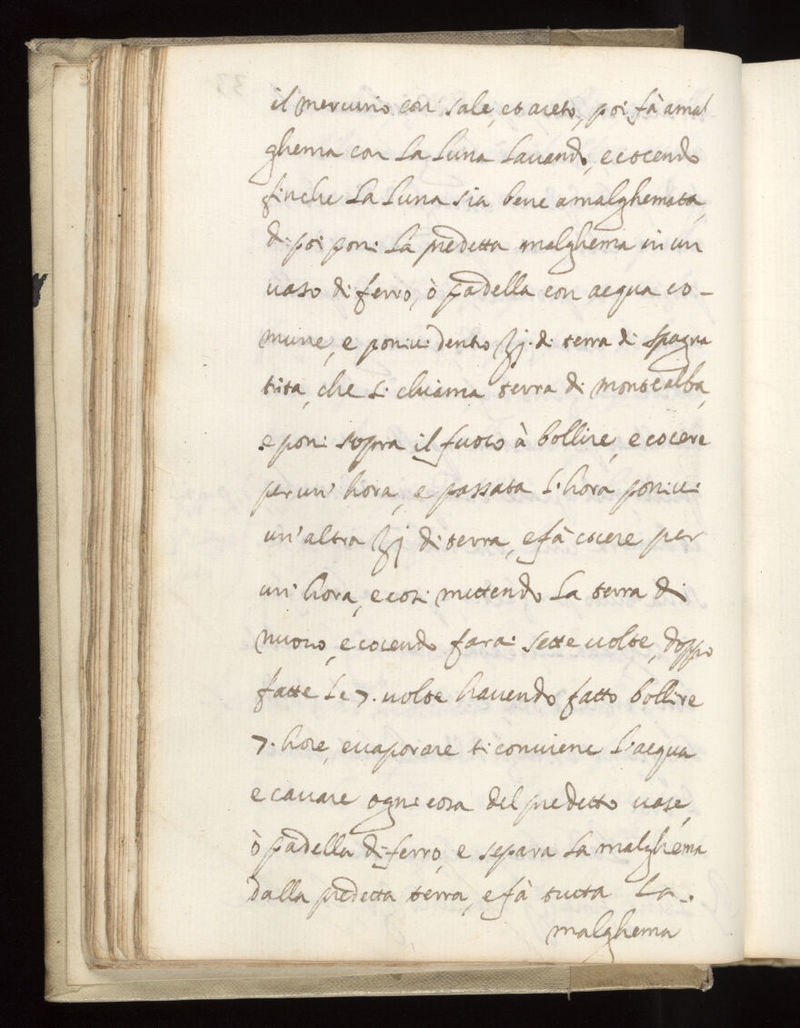 il mercurio con sale, et aceto, poi fà amal
ghema con la luna lavando, e cocendo
finche la luna sia bene amalghemata,
di poi poni la predetta malghema in un
vaso di ferro, ò padella con acqua co-
mune, e ponivi dentro ℥j. di terra di spagna
trita, che si chiama terra di montealba,
e poni sopra il fuoco à bollire, e cocere
per un' hora, e passata l'hora ponivi
un'altra ℥j di terra, e fà cocere per
un' hora, e cosi mettendo la terra di
nuovo, e cocendo farai sette volte, doppo
fatte le 7. volte havendo fatto bollire
7. hore, evaporare ti conviene l'acqua
e cavare ogni cosa del predetto vase,
ò padella di ferro, e separa la malghema
dalla predetta terra, e fà tutta la.
malghema